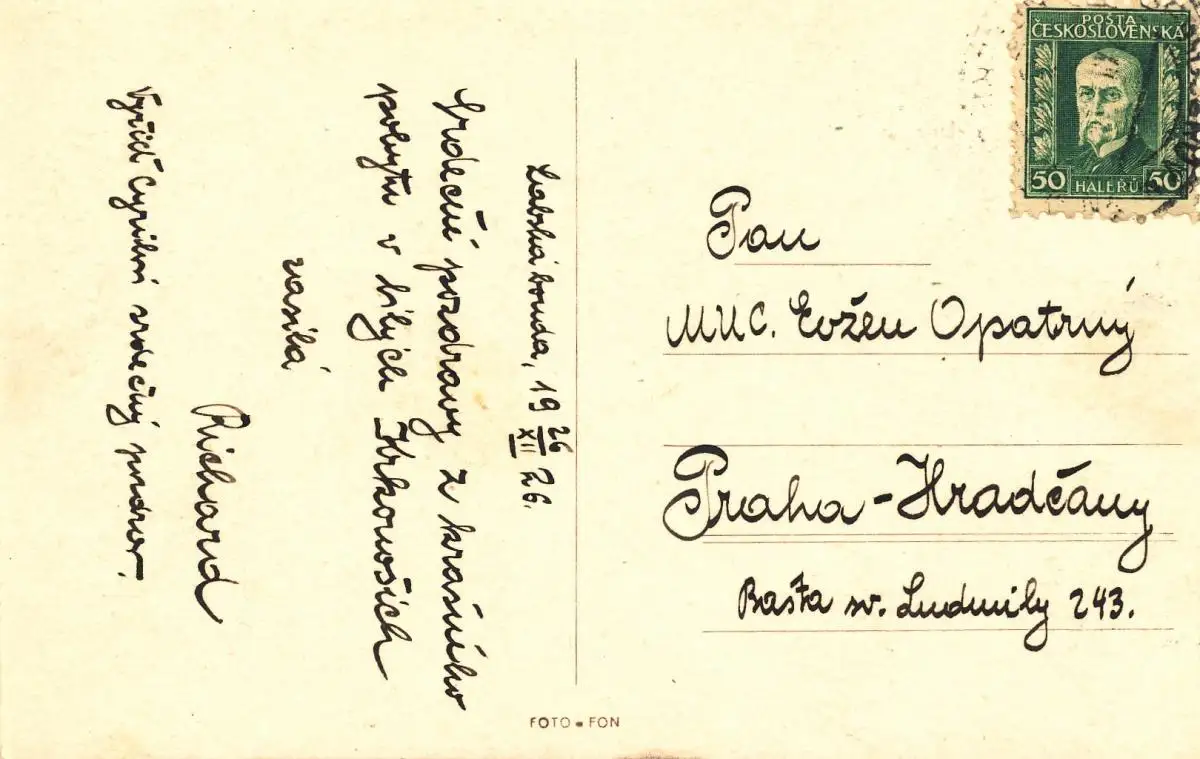 Labská bouda, 19 26/XII 26.
Srdečné pozdravy z krásného
pobytu v bílých Krkonoších
zasílá
Richard
Vyřiď Cyrilovi srdečný pozdrav.
POŠTA
ČESKOSLOVENSKÁ
50 HALÉŘŮ 50
Pan
MUC. Evžen Opatrný
Praha - Hradčany
Bašta sv. Ludmily 243.
FOTO-FON